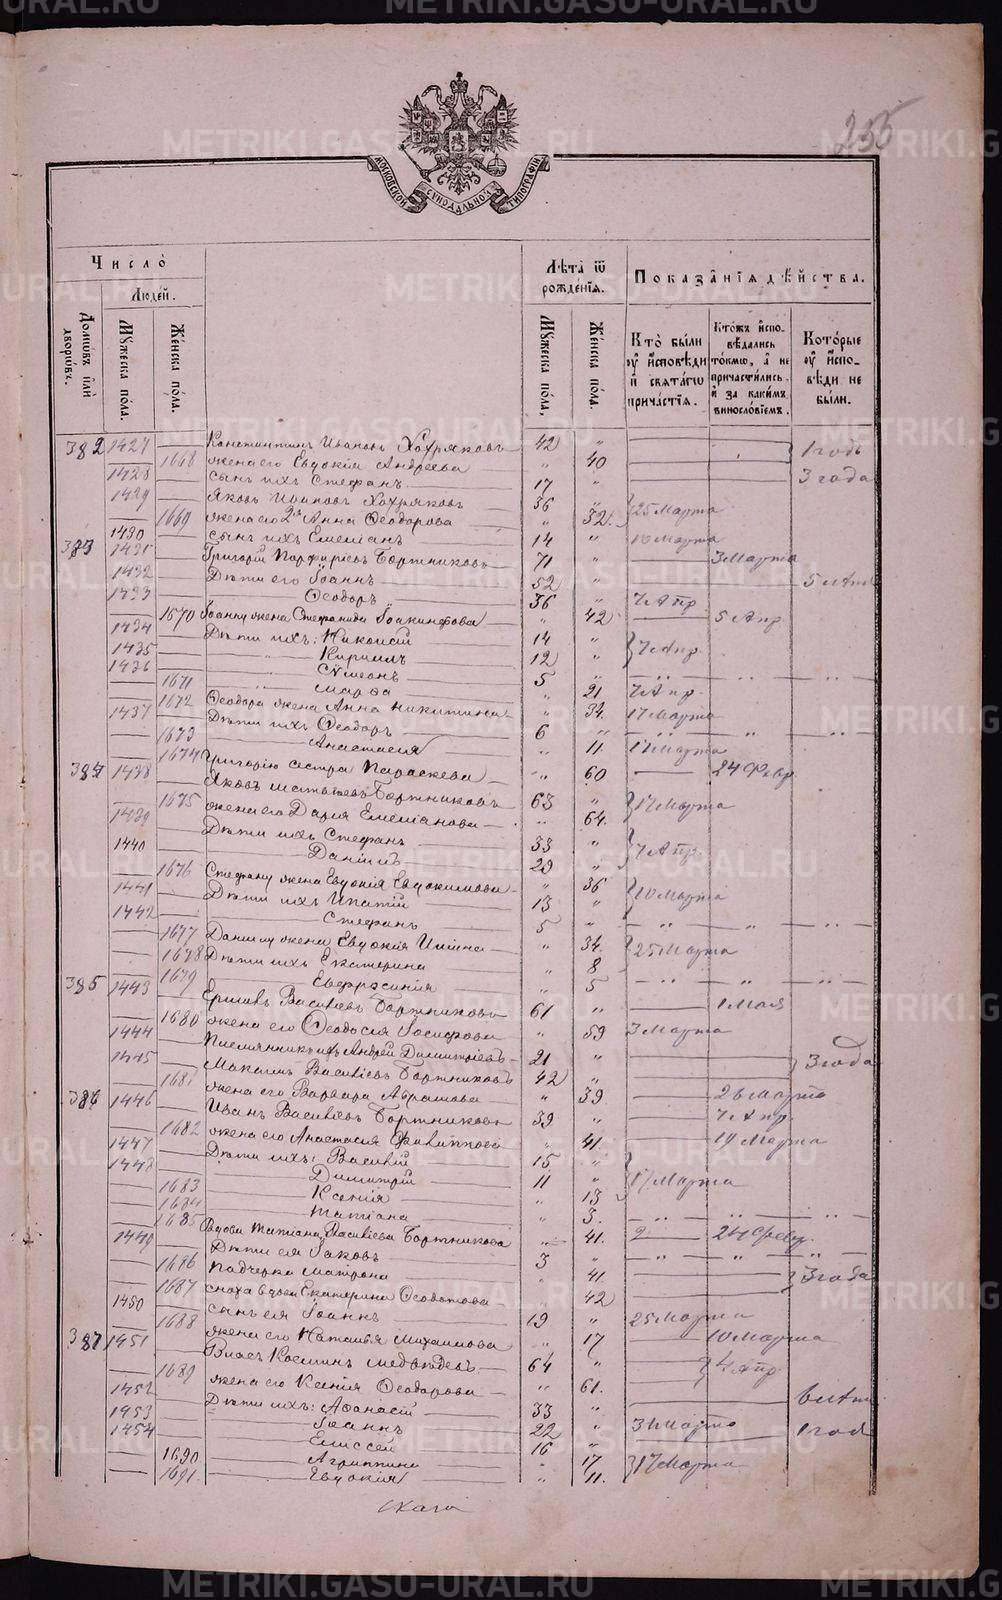 255
МОСКОВСКОЙ СѴНОДАЛЬНОЙ ТИПОГРАФІИ
Число̀
Людей.
Домѡвъ и҆лѝ дворѡвъ.
Мꙋжеска по́ла.
Же́нска по́ла.
Лѣ́та ѿ рожде́нїѧ.
Мꙋжеска по́ла,
Же́нска по́ла.
Показа̂нїѧ дѣ́йства.
Кто̀ бы́ли ᲂу҆ и҆́сповѣди и҆ свѧта́гѡ прича́стїѧ.
Кто́жъ и҆спо-вѣ́дались то́кмѡ, а҆ не причасти́лись, и҆ за каки́мъ винослові́емъ.
Кото́рые ᲂу҆ и҆спо-вѣди не бы́ли.
382 1427 Константинъ Ивановъ Хохряковъ 42 „ 1 годъ
1668 жена его Евдокія Андреева „ 40
1428 сынъ ихъ Стефанъ 17 „ 3 года
1429 Яковъ Ивановъ Хохряковъ 36 „ 25 Марта
1669 жена его 2я Анна Ѳеодорова „ 32
1430 сынъ ихъ Емеліанъ 14 „ 10 Марта
383 1431 Григорій Парфиріевъ Бортниковъ 71 „ 3 Марта
1432 Дѣти его Іоаннъ 52 „ 5 лѣтъ
1433 Ѳеодоръ 36 „ 7 Апр.
1670 Іоанну жена Стефанида Іоакинфова „ 42 5 Апр.
1434 Дѣти ихъ: Никоисій 14 „ 7 Апр.
1435 Кириллъ 12 „
1436 Сѵмеонъ 5 „
1671 Марѳа „ 21 7 Апр.
1672 Ѳеодора жена Анна Никитина „ 34. 17 Марта
1437 Дѣти ихъ Ѳеодоръ 6 „
1673 Анастасія „ 11. 17 Марта
1674 Григорію сестра Параскева „ 60 24 Февр
384 1438 Яковъ Матвѣевъ Бортниковъ 63 „ 17 Марта
1675 жена его Дарія Емеліанова „ 64.
1439 Дѣти ихъ Стефанъ 33 „ 7 Апр.
1440 Даніилъ 29 „
1676 Стефану жена Евдокія Евдокимова „ 36 10 Марта
1441 Дѣти ихъ Ипатій 13 „
1442 Стефанъ 5 „
1677 Даніилу жена Евдокія Ильина „ 34. 25 Марта
1678 Дѣти ихъ Екатерина „ 8
1679 Евфросинія „ 5
385 1443 Ермилъ Васильевъ Бортниковъ 61 „ 1 Мая
1680 жена его Ѳеодосія Іосифова „ 59 3 Марта
1444 Племянникъ ихъ Андрей Димитріевъ 21 „ 3 года
1445 Максимъ Васильевъ Бортниковъ 42 „
1681 жена его Варвара Абрамова „ 39 26 Марта
386 1446 Иванъ Васильевъ Бортниковъ 39 „ 7 Апр.
1682 жена его Анастасія Филиппова „ 41. 19 Марта
1447 Дѣти ихъ: Василій 15 „ 17 Марта
1448 Димитрій 11 „
1683 Ксенія „ 13
1684 Татіана „ 3.
1685 Вдова Татіана Васильева Бортникова „ 41. 24 Февр.
1449 Дѣти ея Іаковъ 3 „
1686 Падчерка Матрона „ 41. 3 года
1687 сноха вдова Екатерина Ѳеодотова „ 42
1450 сынъ ея Іоаннъ 19 „ 25 Марта
1688 жена его Наталья Михаилова „ 17 10 Марта
387 1451 Власъ Козминъ Медвѣдевъ 64 „ 4 Апр.
1689 жена его Ксенія Ѳеодорова „ 61.
1452 Дѣти ихъ: Аѳанасій 33 „ 6 лѣтъ
1453 Іоаннъ 22 „ 31 Марта 1 годъ
1454 Елиссей 16 „
1690 Агриппина „ 17 17 Марта
1691 Евдокія „ 11.
METRIKI.GASO-URAL.RU